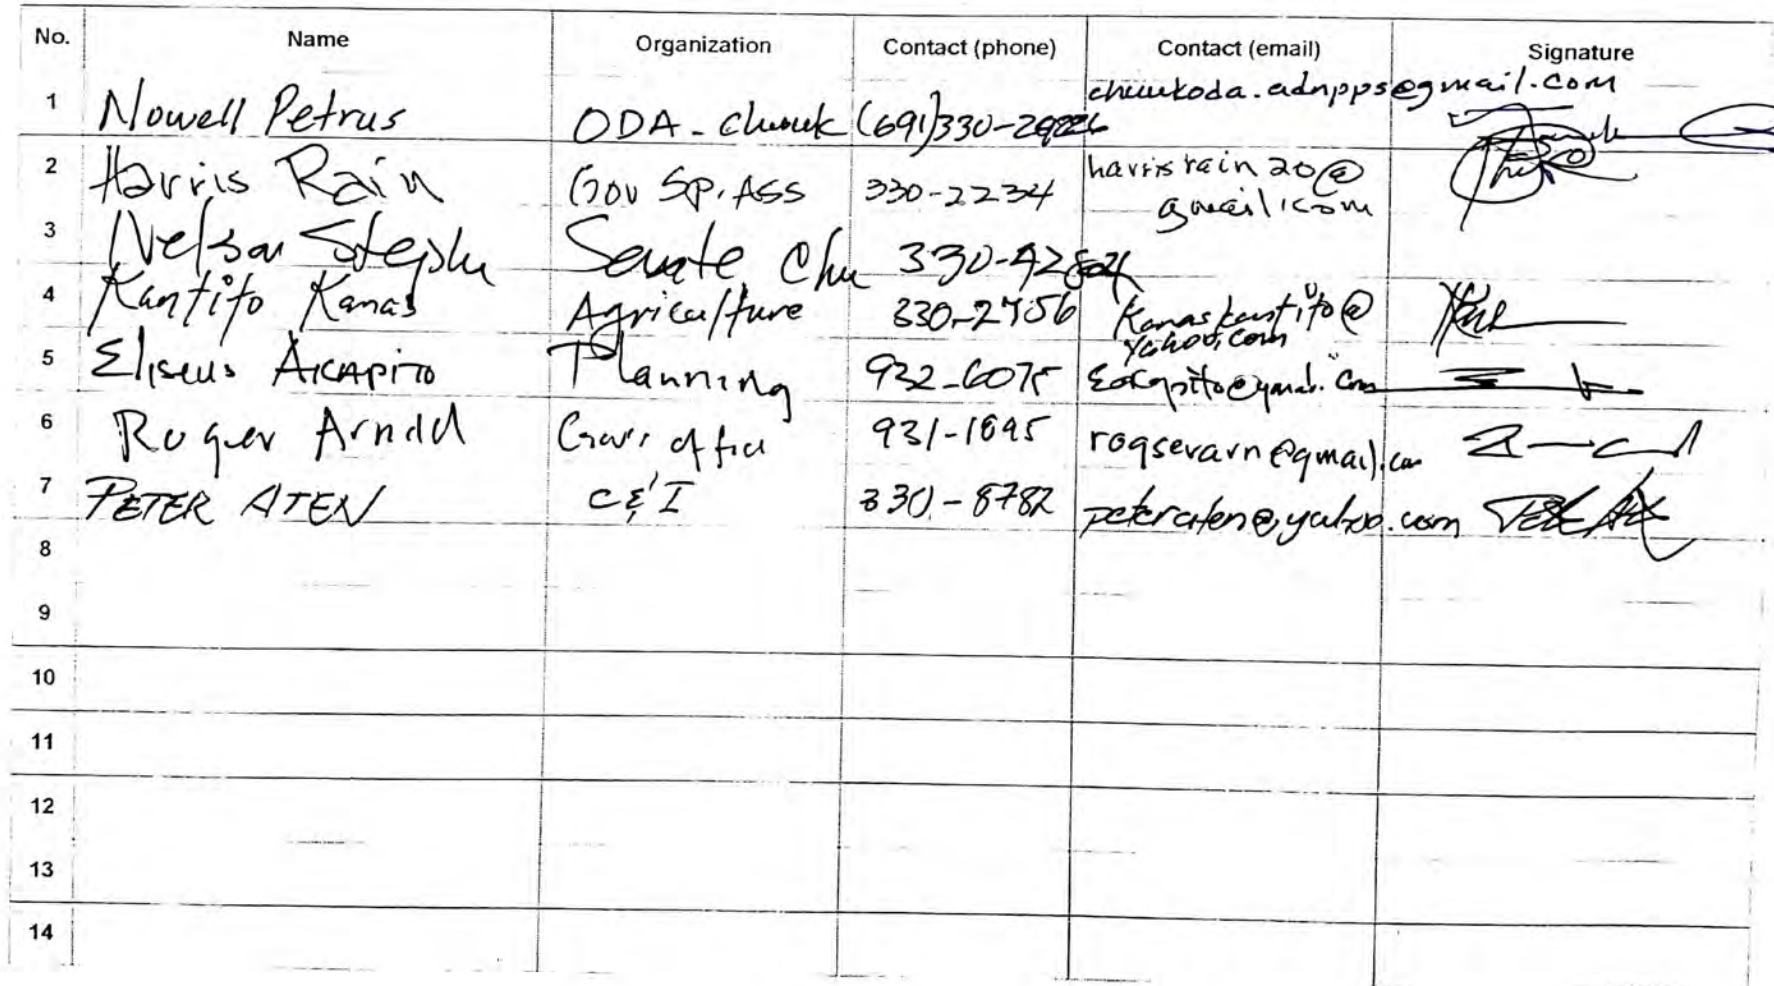 No. Name Organization Contact (phone) Contact (email) Signature
1 Nowell Petrus ODA - Chuuk (691)330- chuukoda.adnpps@gmail.com
2 Harris Rain Gov Sp. Ass 330-2234 harrisrain20@
gmail.com
3 Nelson Stephen Senate Chu
4 Kantito Kanas Agriculture 330-2756 Kanaskantito@
yahoo.com
5 Eliseus AKAPITO Planning 932-6075
6 Roger Arnold Gov's office 931-1895
7 PETER ATEN C & I 330-8782 peteraten@yahoo.com
8
9
10
11
12
13
14